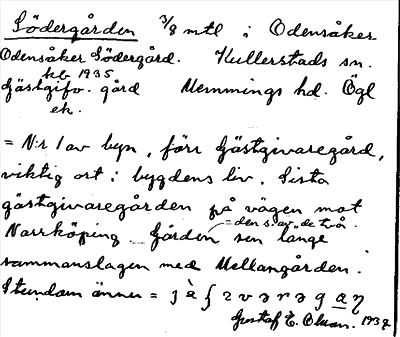 Södergården 3/8 mtl i Odensåker
Odensåker Södergård. Kullerstads sn.
kb 1935
Gästgifv. gård Memmings hd. Ögl
ek.
= N:r 1 av byn, förr Gästgivaregård,
viktig ort i bygdens liv. Sista
gästgivaregården på vägen mot
= den s. av de två.
Norrköping Gården sen länge
sammanslagen med Mellangården.
Stundom ännu =
Gustaf E. Olsson. 1937